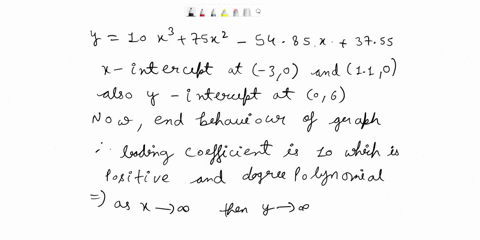 y = 10 x³ + 75x² - 54.85.x. + 37.55
x-intercept at (-3,0) and (1.1,0)
also y-intercept at (0,6)
Now, end behaviour of geraph
∴ leading coefficient is 10 which is
positive and degree Polynomial
=) as x → ∞ then y → ∞